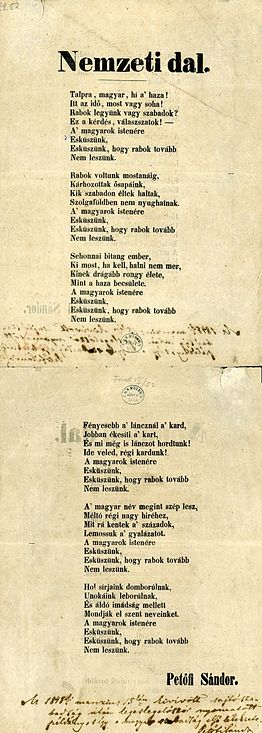 Nemzeti dal.
Talpra, magyar, hí a' haza!
Itt az idő, most vagy soha!
Rabok legyünk vagy szabadok?
Ez a kérdés, válaszszatok! —
A' magyarok istenére
Esküszünk,
Esküszünk, hogy rabok tovább
Nem leszünk.
Rabok voltunk mostanáig,
Kárhozottak ősapáink,
Kik szabadon éltek haltak,
Szolgaföldben nem nyughatnak.
A' magyarok istenére
Esküszünk,
Esküszünk, hogy rabok tovább
Nem leszünk.
Sehonnai bitang ember,
Ki most, ha kell, halni nem mer,
Kinek drágább rongy élete,
Mint a haza becsülete.
A magyarok istenére
Esküszünk,
Esküszünk, hogy rabok tovább
Nem leszünk.
Fényesebb a' láncznál a' kard,
Jobban ékesíti a' kart,
És mi még is lánczot hordtunk!
Ide veled, régi kardunk!
A magyarok istenére
Esküszünk,
Esküszünk, hogy rabok tovább
Nem leszünk.
A' magyar név megint szép lesz,
Méltó régi nagy hiréhez,
Mit rá kentek a' századok,
Lemossuk a' gyalázatot.
A magyarok istenére
Esküszünk,
Esküszünk, hogy rabok tovább
Nem leszünk.
Hol sírjaink domborúlnak,
Unokáink leborúlnak,
És áldó imádság mellett
Mondják el szent neveinket.
A magyarok istenére
Esküszünk,
Esküszünk, hogy rabok tovább
Nem leszünk.
Petőfi Sándor.
Az 1848 marczius 15én kivívott sajtósza-
badság után legeslegelőször nyomtatott
példány, s így a magyar szabadság első lélekzete.